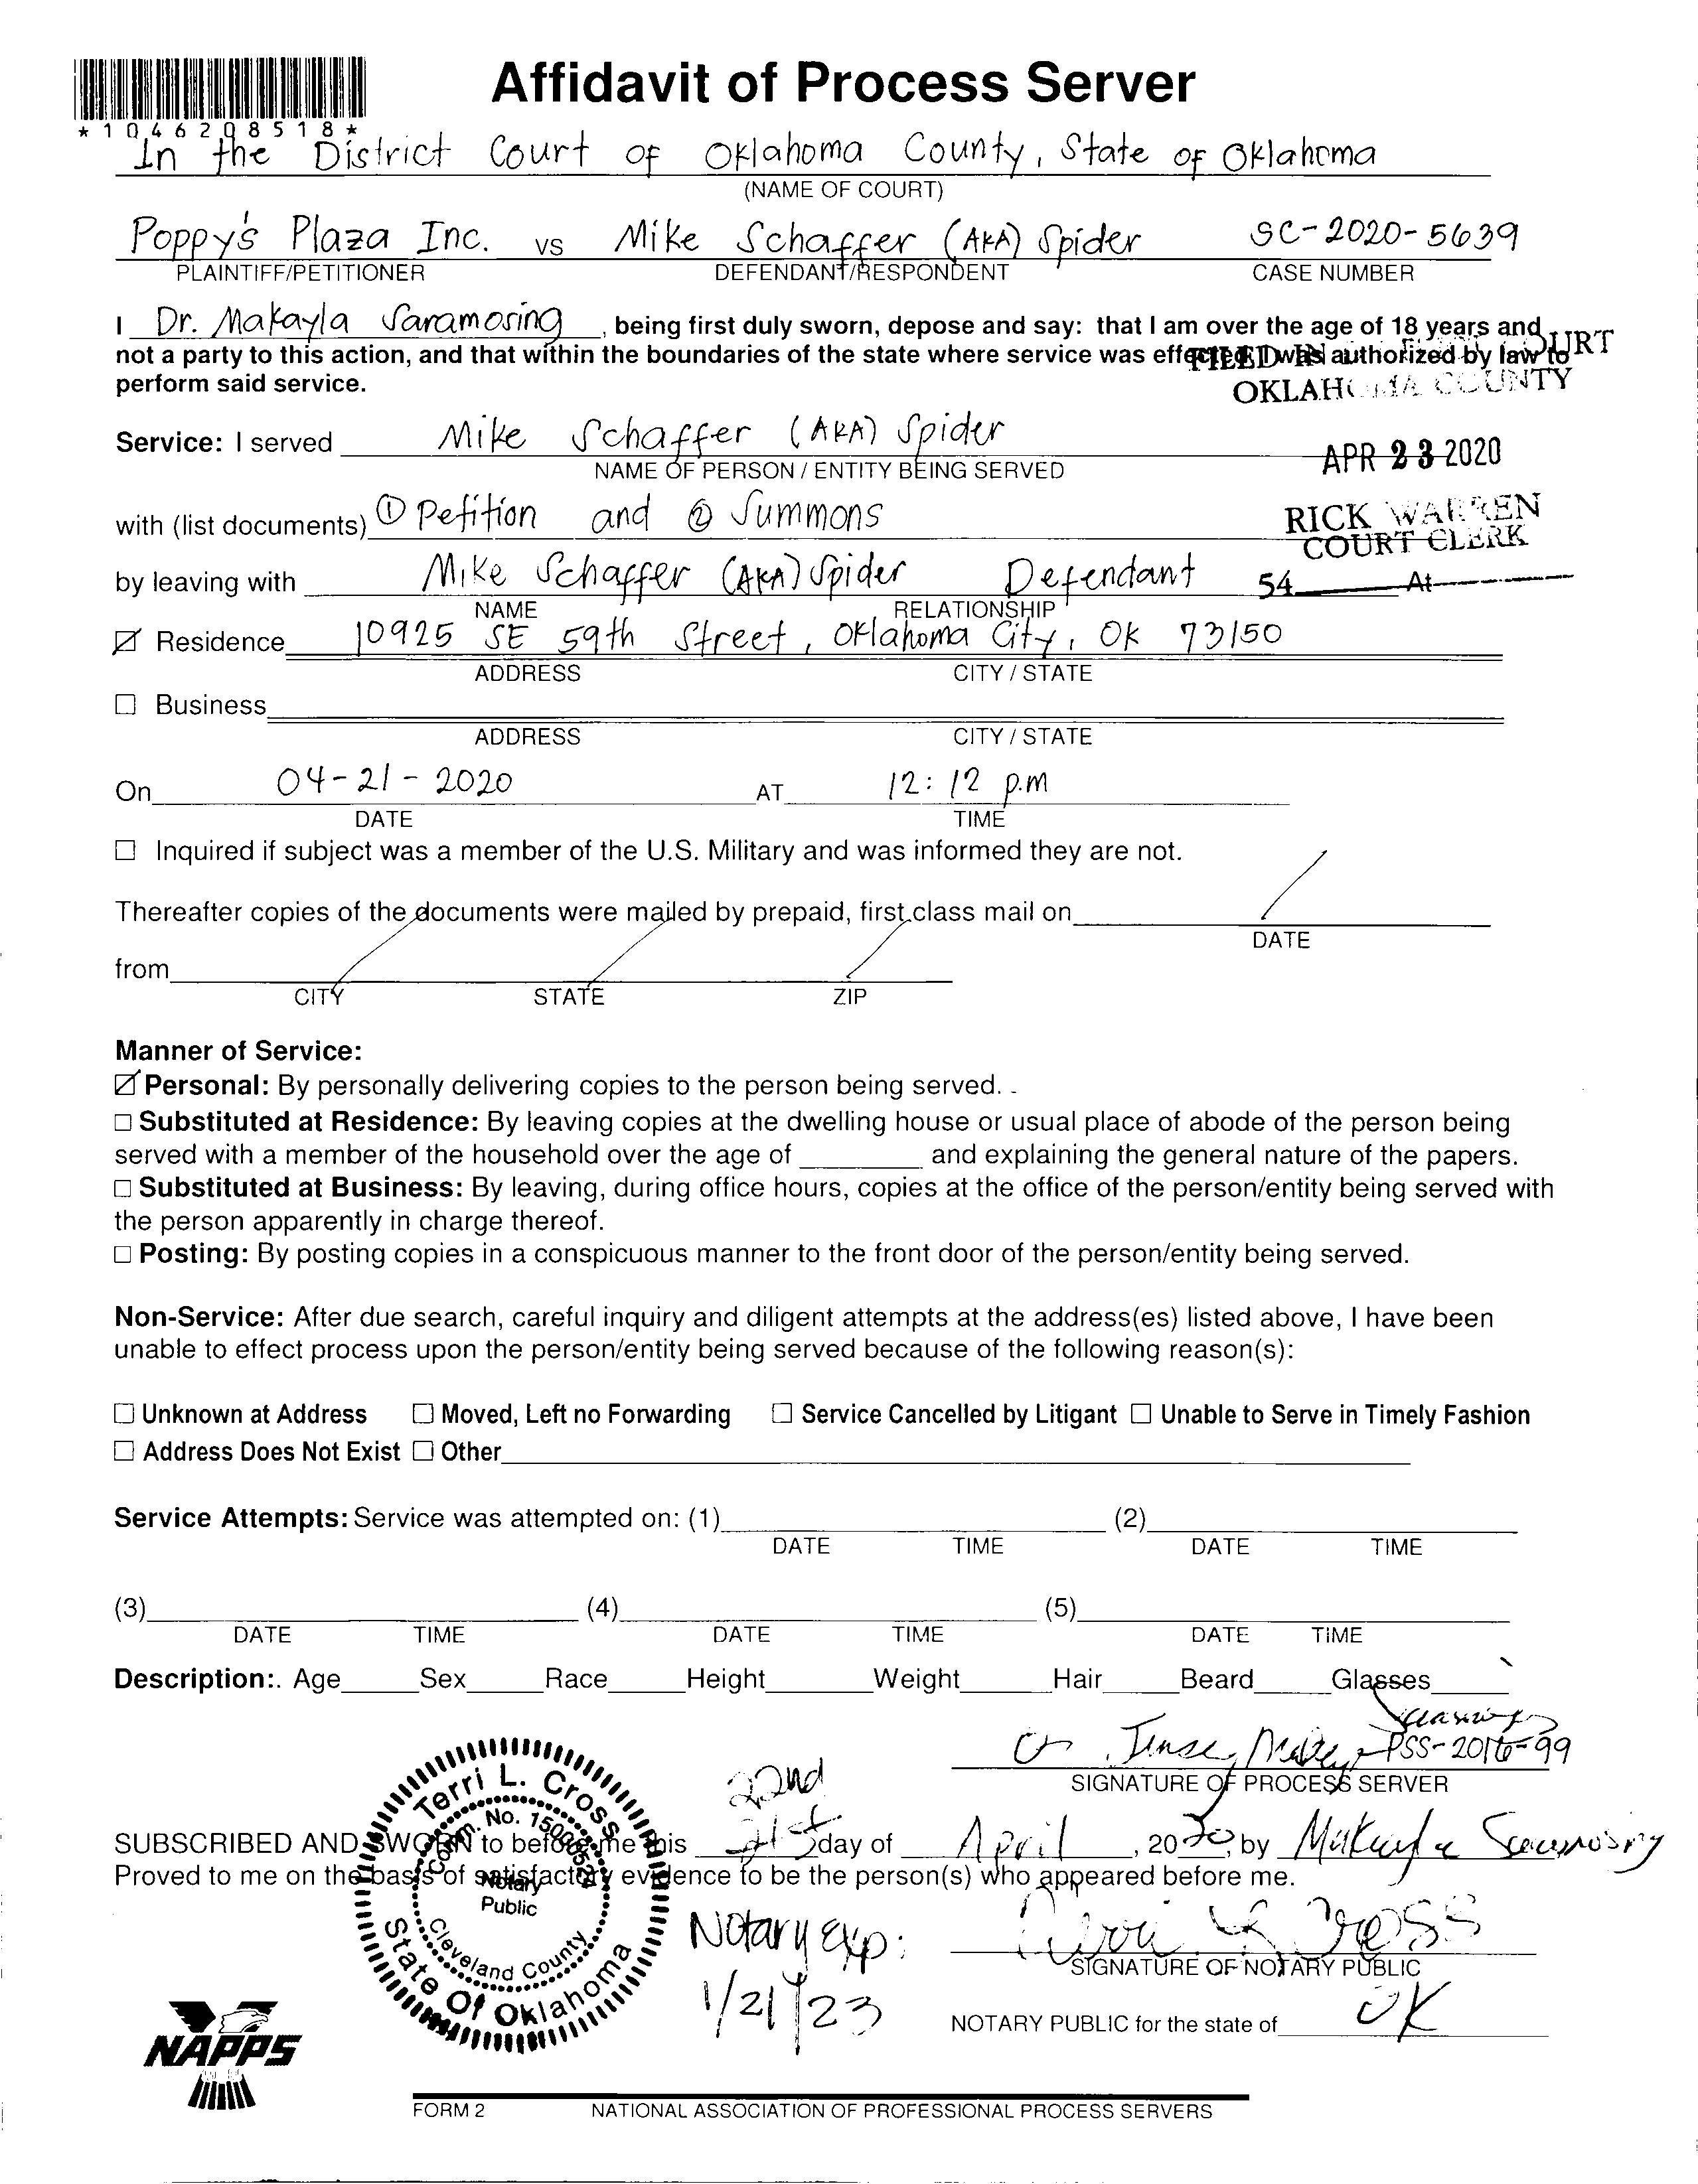 Affidavit of Process Server
*1046208518*
In the District Court of Oklahoma County, State of Oklahoma
(NAME OF COURT)
Poppy's Plaza Inc. vs Mike Schaffer (AKA) Spider SC-2020-5639
PLAINTIFF/PETITIONER DEFENDANT/RESPONDENT CASE NUMBER
I Dr. Makayla Saramosing, being first duly sworn, depose and say: that I am over the age of 18 years and
not a party to this action, and that within the boundaries of the state where service was effected, I was authorized by law to
perform said service.
FILED IN COURT
OKLAHOMA COUNTY
Service: I served Mike Schaffer (AKA) Spider
NAME OF PERSON / ENTITY BEING SERVED
APR 23 2020
with (list documents) ① Petition and ② Summons
RICK WARREN
COURT CLERK
by leaving with Mike Schaffer (AKA) Spider Defendant
54 At
NAME RELATIONSHIP
☑ Residence 10925 SE 59th Street, Oklahoma City, OK 73150
ADDRESS CITY / STATE
☐ Business
ADDRESS CITY / STATE
On 04-21-2020 AT 12:12 p.m
DATE TIME
☐ Inquired if subject was a member of the U.S. Military and was informed they are not.
Thereafter copies of the documents were mailed by prepaid, first class mail on
DATE
from
CITY STATE ZIP
Manner of Service:
☑ Personal: By personally delivering copies to the person being served.
☐ Substituted at Residence: By leaving copies at the dwelling house or usual place of abode of the person being
served with a member of the household over the age of ____ and explaining the general nature of the papers.
☐ Substituted at Business: By leaving, during office hours, copies at the office of the person/entity being served with
the person apparently in charge thereof.
☐ Posting: By posting copies in a conspicuous manner to the front door of the person/entity being served.
Non-Service: After due search, careful inquiry and diligent attempts at the address(es) listed above, I have been
unable to effect process upon the person/entity being served because of the following reason(s):
☐ Unknown at Address ☐ Moved, Left no Forwarding ☐ Service Cancelled by Litigant ☐ Unable to Serve in Timely Fashion
☐ Address Does Not Exist ☐ Other
Service Attempts: Service was attempted on: (1) (2)
DATE TIME DATE TIME
(3) (4) (5)
DATE TIME DATE TIME DATE TIME
Description:. Age Sex Race Height Weight Hair Beard Glasses
PSS-2016-99
SIGNATURE OF PROCESS SERVER
22nd
SUBSCRIBED AND SWORN to before me this 21st day of April, 2020, by Makayla Saramosing
Proved to me on the basis of satisfactory evidence to be the person(s) who appeared before me.
Terri L. Cross
Comm. No. 15000524
Notary
Public
Cleveland County
State Of Oklahoma
Notary exp:
1/21/23
Terri L Cross
SIGNATURE OF NOTARY PUBLIC
NOTARY PUBLIC for the state of OK
NAPPS
FORM 2 NATIONAL ASSOCIATION OF PROFESSIONAL PROCESS SERVERS